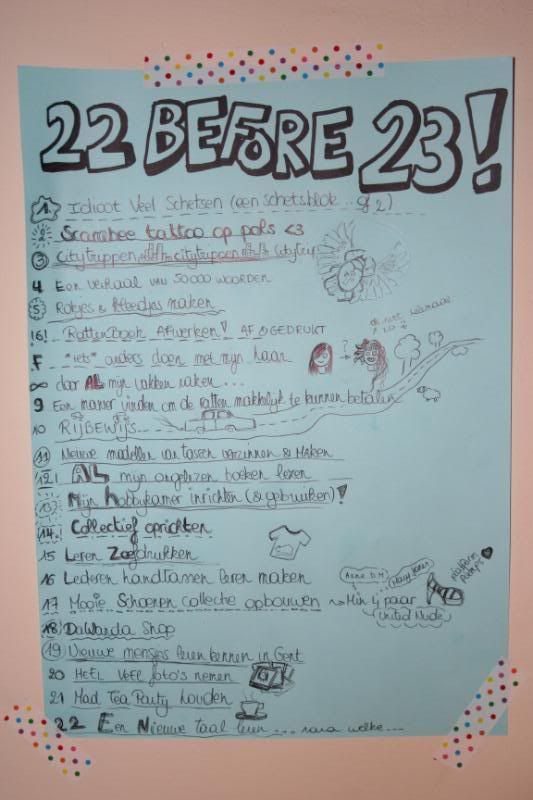 22 BEFORE 23!
1. Idioot Veel Schetsen (een schetsblok .. of 2)
2 Scarabee tattoo op pols <3
3 Citytrippen citytrippen citytrip
4 Een verhaal van 50 000 woorden
5 Rokjes & Kleedjes maken
6! Rattenboek Afwerken! AF & GEDRUKT
7 *iets* anders doen met mijn haar
8 door AL mijn vakken raken...
9 Een manier vinden om de ratten makkelijk te kunnen betalen
10 RIJBEWIJS...
11 Nieuwe modellen van tassen verzinnen & Maken
12! AL mijn ongelezen boeken lezen
13 Mijn Hobbykamer inrichten (& gebruiken)!
14. Collectief oprichten
15 Leren Zeefdrukken
16 Lederen handtassen leren maken
17 Mooie Schoenen collectie opbouwen → Min 4 paar
Anne D.M
United Nude
platform pumps
18) DaWanda Shop
19 Nieuwe mensjes leren kennen in Gent
20 HEEL VEEL foto's nemen
21 Mad Tea Party houden
22 Een Nieuwe taal leren ... rara welke...